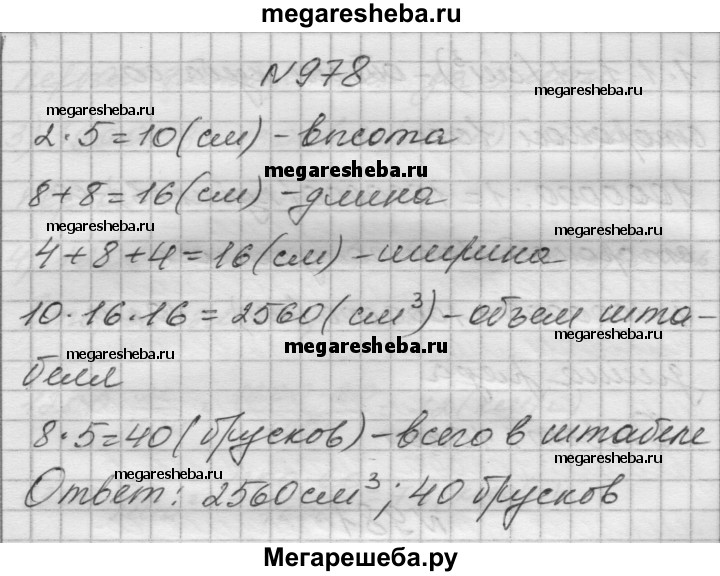 megaresheba.ru
N978
megaresheba.ru
megaresheba.ru
2·5=10(см) - высота
megaresheba.ru
8+8=16(см) - длина
megaresheba.ru
megaresheba.ru
4+8+4=16(см) - ширина
10·16·16=2560(см³) - объем шта-
megaresheba.ru
megaresheba.ru
megaresheba.ru
беля
8·5=40(брусков) - всего в штабеле
megaresheba.ru
megaresheba.ru
Ответ: 2560см³; 40 брусков
Мегарешеба.ру